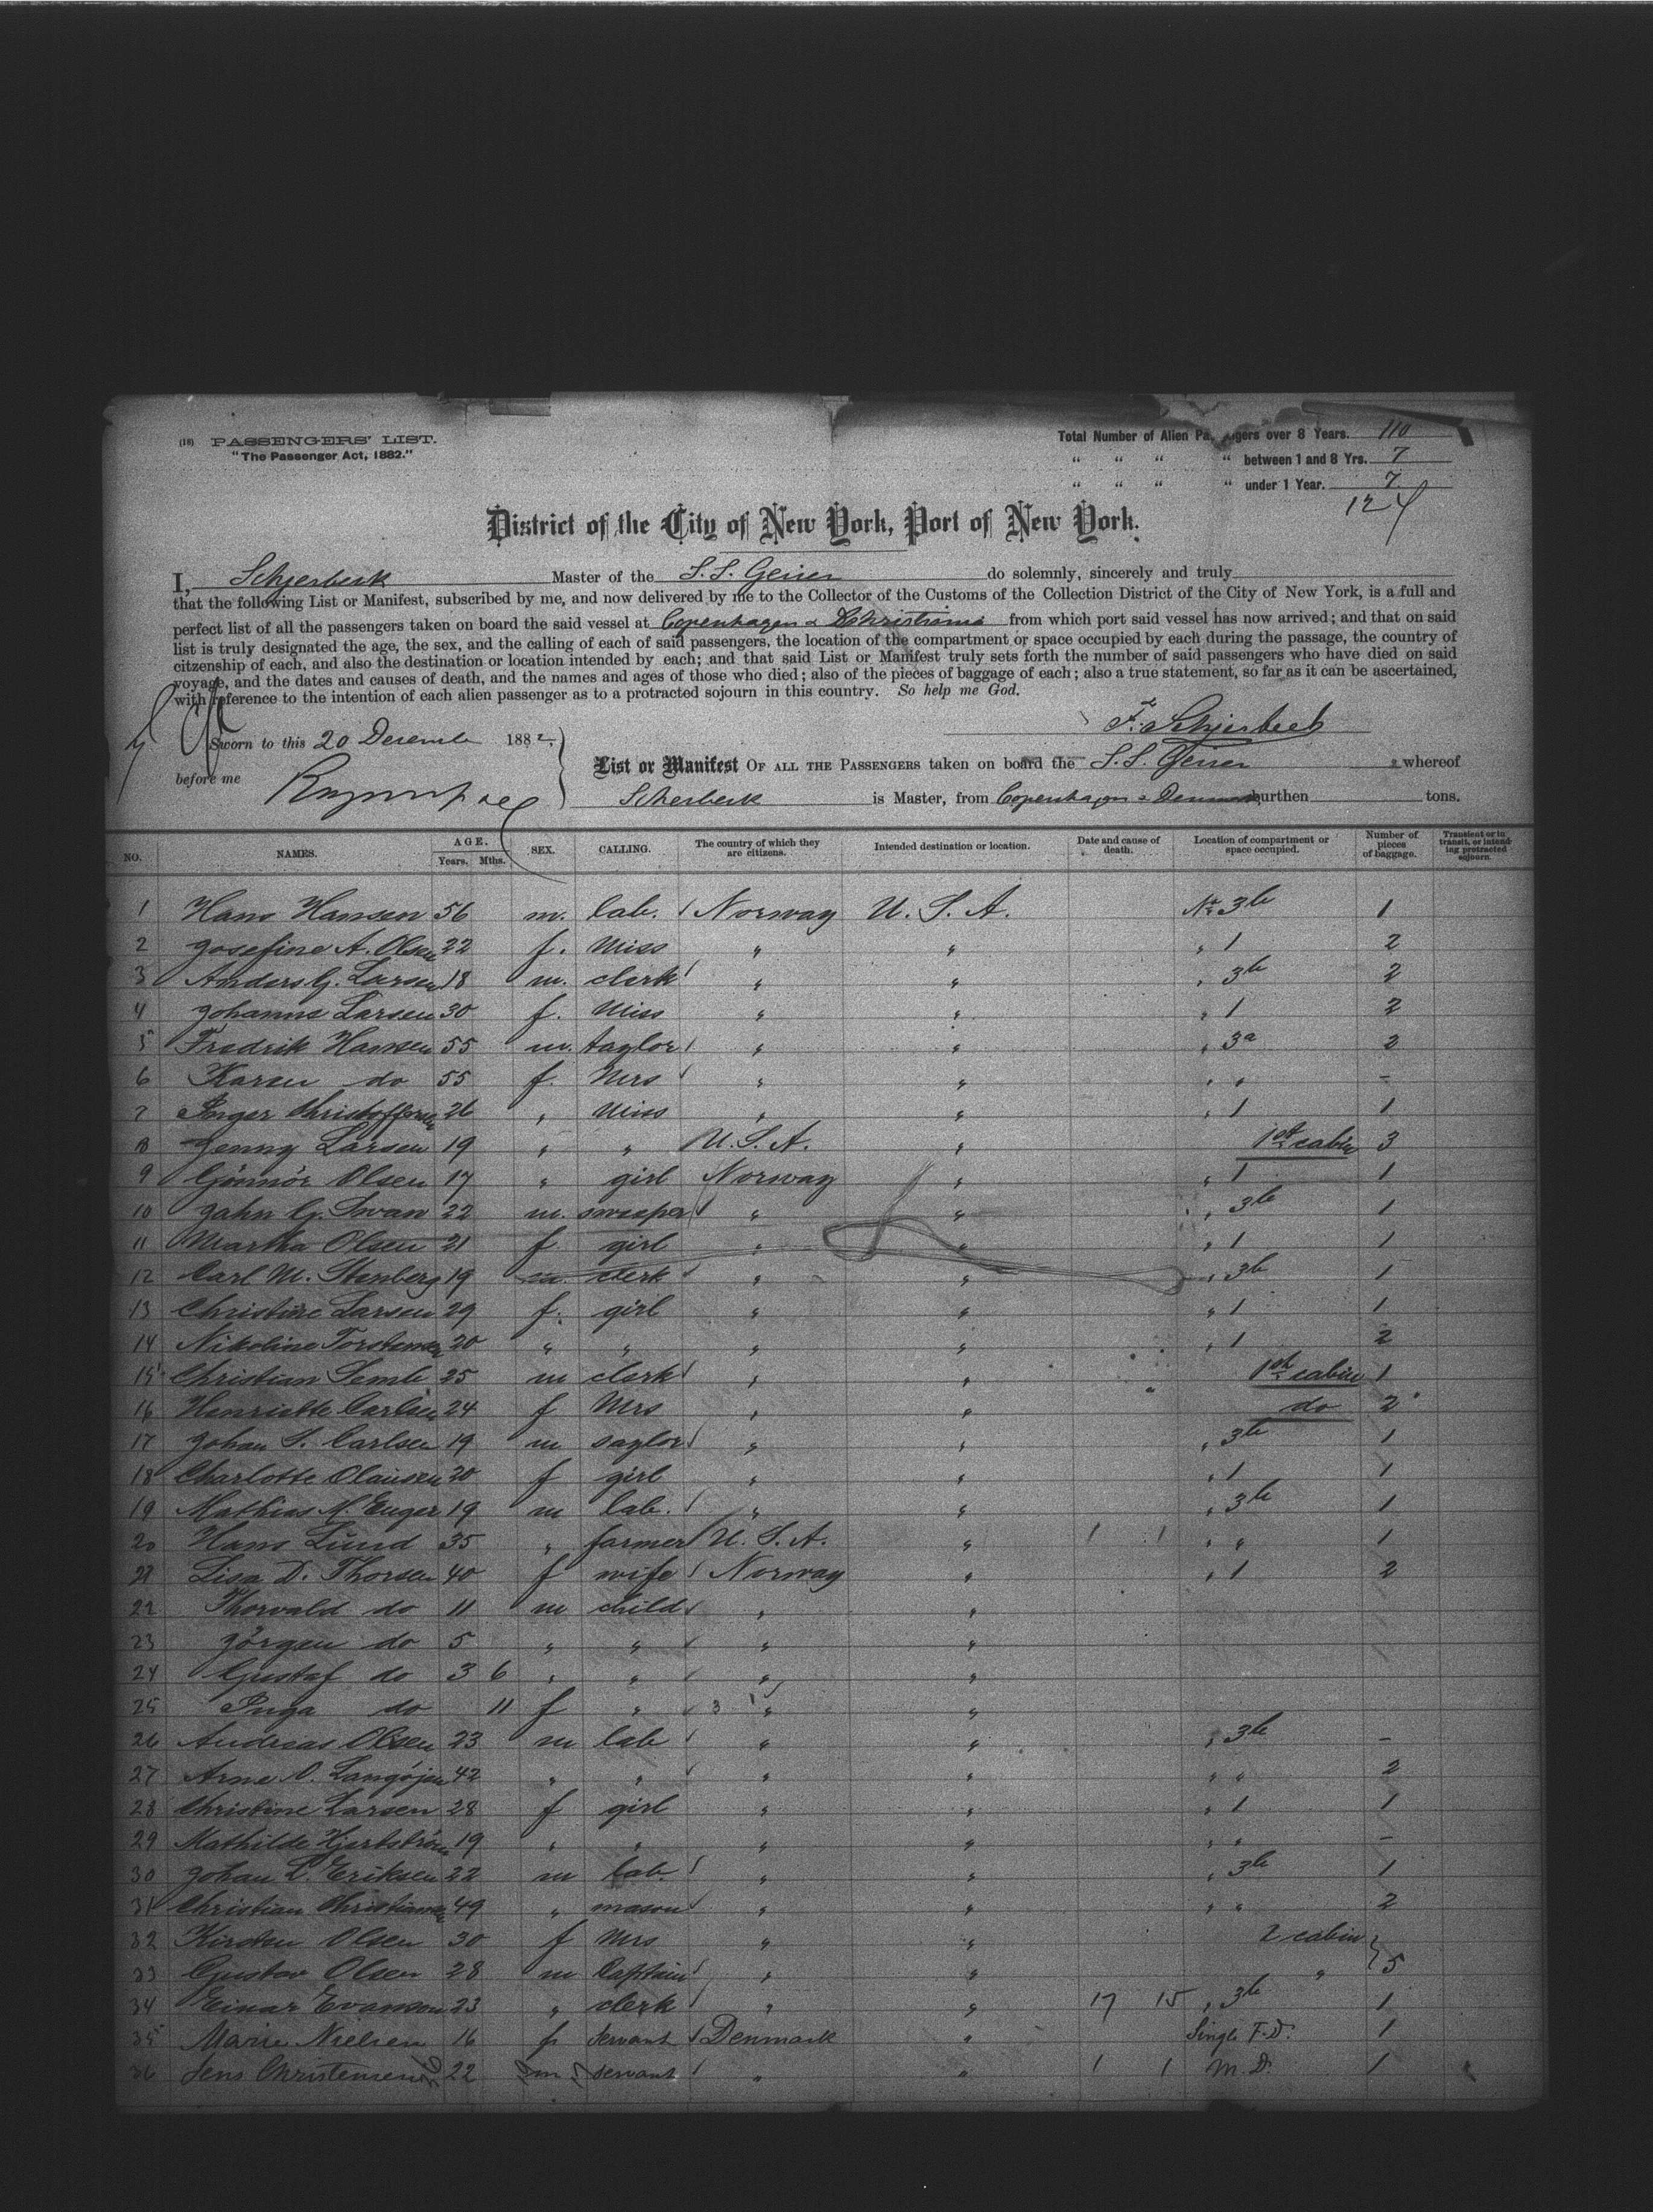 (16) PASSENGERS' LIST.
"The Passenger Act, 1882."
Total Number of Alien Pa gers over 8 Years. 110
" " " " between 1 and 8 Yrs. 7
" " " " under 1 Year. 7
124
District of the City of New York, Port of New York.
I, Schjerbeck Master of the S.S. Geiser do solemnly, sincerely and truly
that the following List or Manifest, subscribed by me, and now delivered by me to the Collector of the Customs of the Collection District of the City of New York, is a full and
perfect list of all the passengers taken on board the said vessel at Copenhagen & Christiania from which port said vessel has now arrived; and that on said
list is truly designated the age, the sex, and the calling of each of said passengers, the location of the compartment or space occupied by each during the passage, the country of
citzenship of each, and also the destination or location intended by each; and that said List or Manifest truly sets forth the number of said passengers who have died on said
voyage, and the dates and causes of death, and the names and ages of those who died; also of the pieces of baggage of each; also a true statement, so far as it can be ascertained,
with reference to the intention of each alien passenger as to a protracted sojourn in this country. So help me God.
F. Schjerbeck
Sworn to this 20 December 1882,
before me
List or Manifest OF ALL THE PASSENGERS taken on board the S.S. Geiser whereof
Scherbeck is Master, from Copenhagen & burthen tons.
NO. NAMES. AGE. Years. Mths. SEX. CALLING. The country of which they are citizens. Intended destination or location. Date and cause of death. Location of compartment or space occupied. Number of pieces of baggage. Transient or in transit, or intending protracted sojourn.
1 Hans Hansen 56 m. lab. Norway U. S. A. No 3b 1
2 Josefine A. Olsen 22 f. Miss " " " 1 2
3 Anders G. Larsen 18 m. clerk " " " 3b 2
4 Johanne Larsen 30 f. Miss " " " 1 2
5 Fredrik Hansen 55 m. taylor " " " 3a 2
6 Karen do 55 f. Mrs " " " " -
7 Inger Christoffersen 26 " Miss " " " 1 1
8 Jenny Larsen 19 " " U. S. A. " 1st cabin 3
9 Olsen 17 " girl Norway " " 1 1
10 John G. Swan 22 m. sweeper " " " 3b 1
11 Martha Olsen 21 f girl " " " 1 1
12 Carl M. Stenberg 19 m. clerk " " " 3b 1
13 Christine Larsen 29 f. girl " " " 1 1
14 Nikoline Torstensen 20 " " " " " 1 2
15 Christian Semb 25 m clerk " " 1st cabin 1
16 Henriette Carlsen 24 f Mrs " " do 2
17 Johan S. Carlsen 19 m saylor " " " 3b 1
18 Charlotte Olausen 20 f girl " " " 1 1
19 Mathias M. Enger 19 m lab. " " " 3b 1
20 Hans Lund 35 " farmer U. S. A. " 1 1 " " 1
21 Lisa D. Thorsen 40 f wife Norway " " 1 2
22 Thorvald do 11 m child " "
23 Jörgen do 5 " " " "
24 Gustaf do 3 6 " " " "
25 Inga do 11 f " 3 " "
26 Andreas Olsen 23 m lab " " " 3b -
27 Arne O. 42 " " " " " " 2
28 Christine Larsen 28 f girl " " " 1 1
29 Mathilde Hjertström 19 " " " " " " -
30 Johan L. Eriksen 22 m lab. " " " 3b 1
31 Christian Christiansen 49 " mason " " " " 2
32 Kirsten Olsen 30 f Mrs " " 2 cabin
33 Gustav Olsen 28 m Captain " " " 5
34 Einar Evensen 23 " clerk " " 17 15 " 3b 1
35 Marie Nielsen 16 f servant Denmark " Single F.D. 1
36 Jens Christensen 22 m servant " " 1 1 M.D. 1